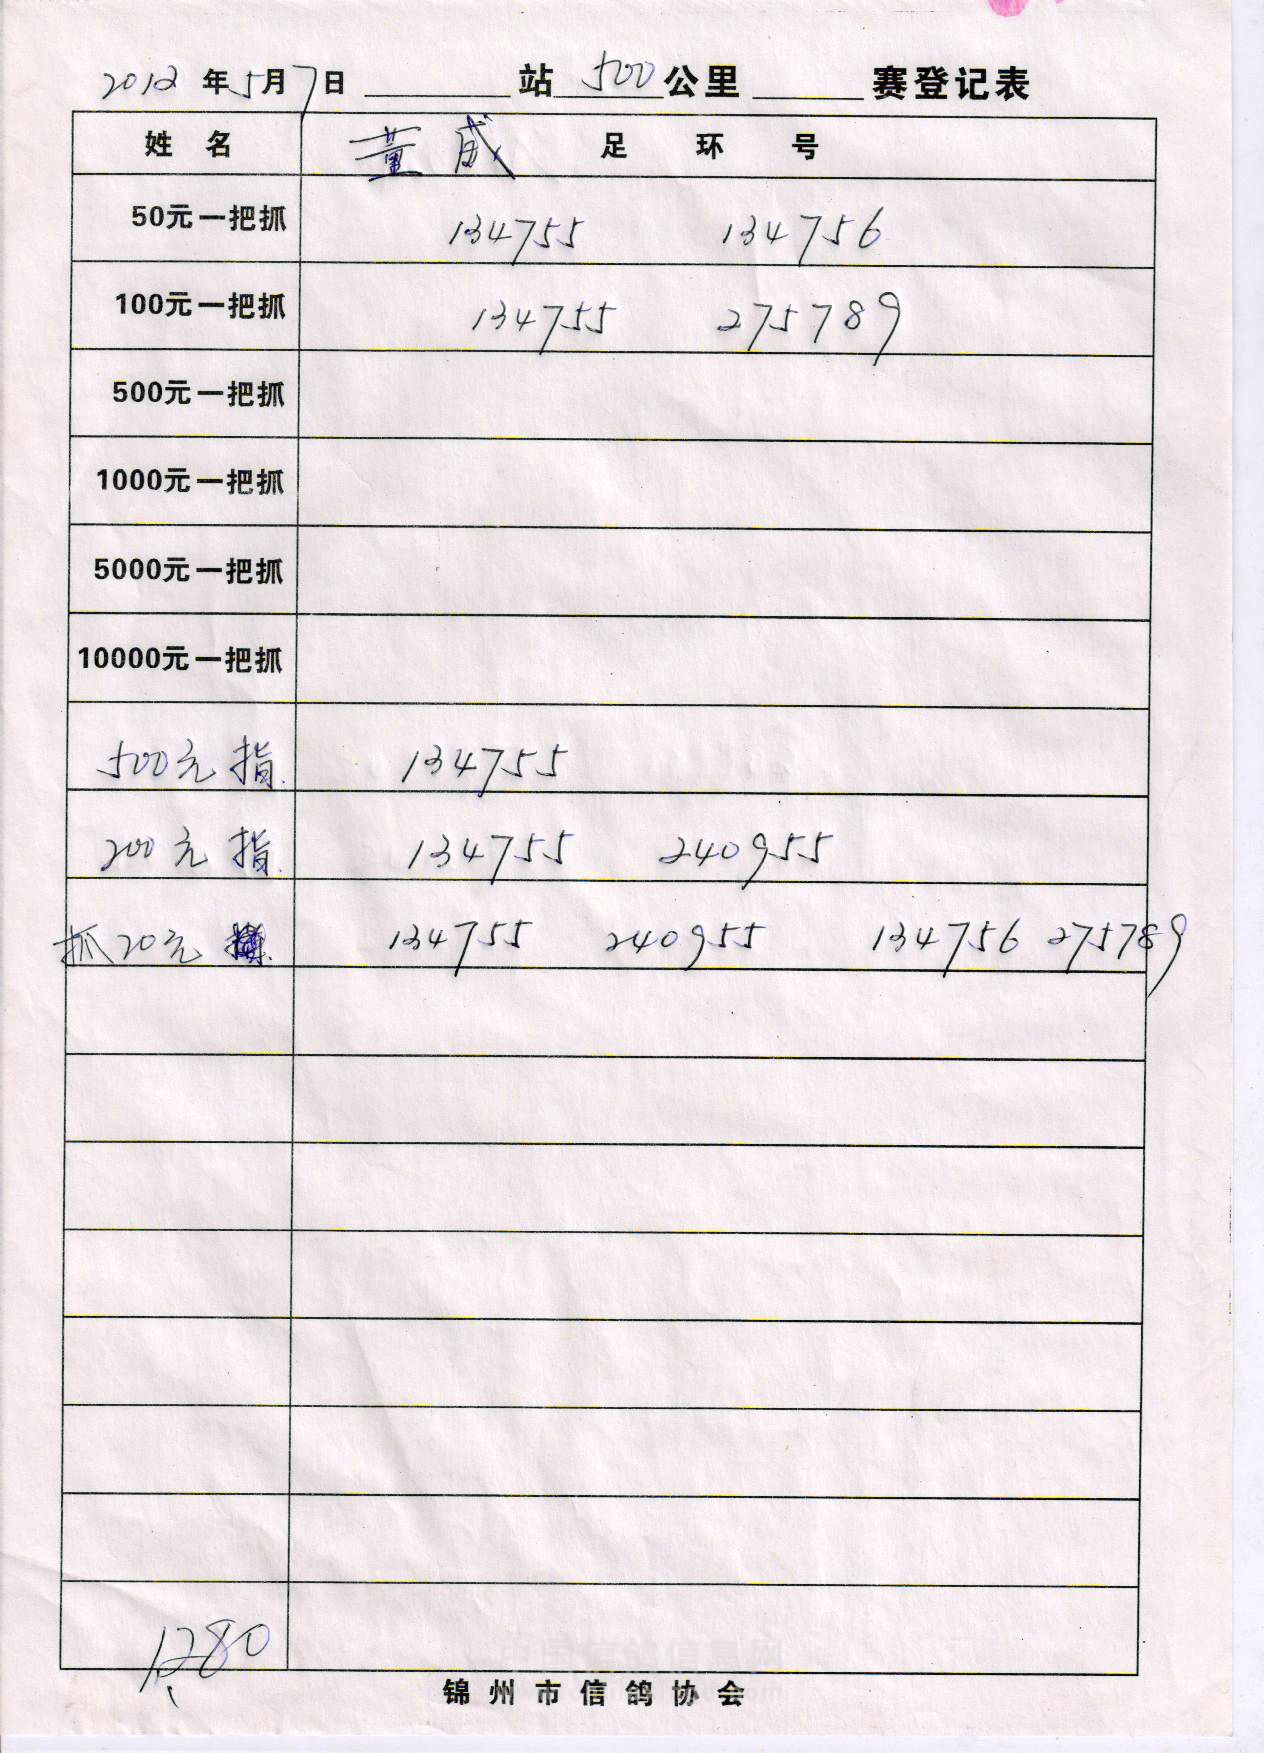 2012年5月7日 站 500公里 赛登记表
姓名 董威 足环号
50元一把抓 134755 134756
100元一把抓 134755 275789
500元一把抓
1000元一把抓
5000元一把抓
10000元一把抓
500元指 134755
200元指 134755 240955
抓20元 134755 240955 134756 275789
1280
锦州市信鸽协会